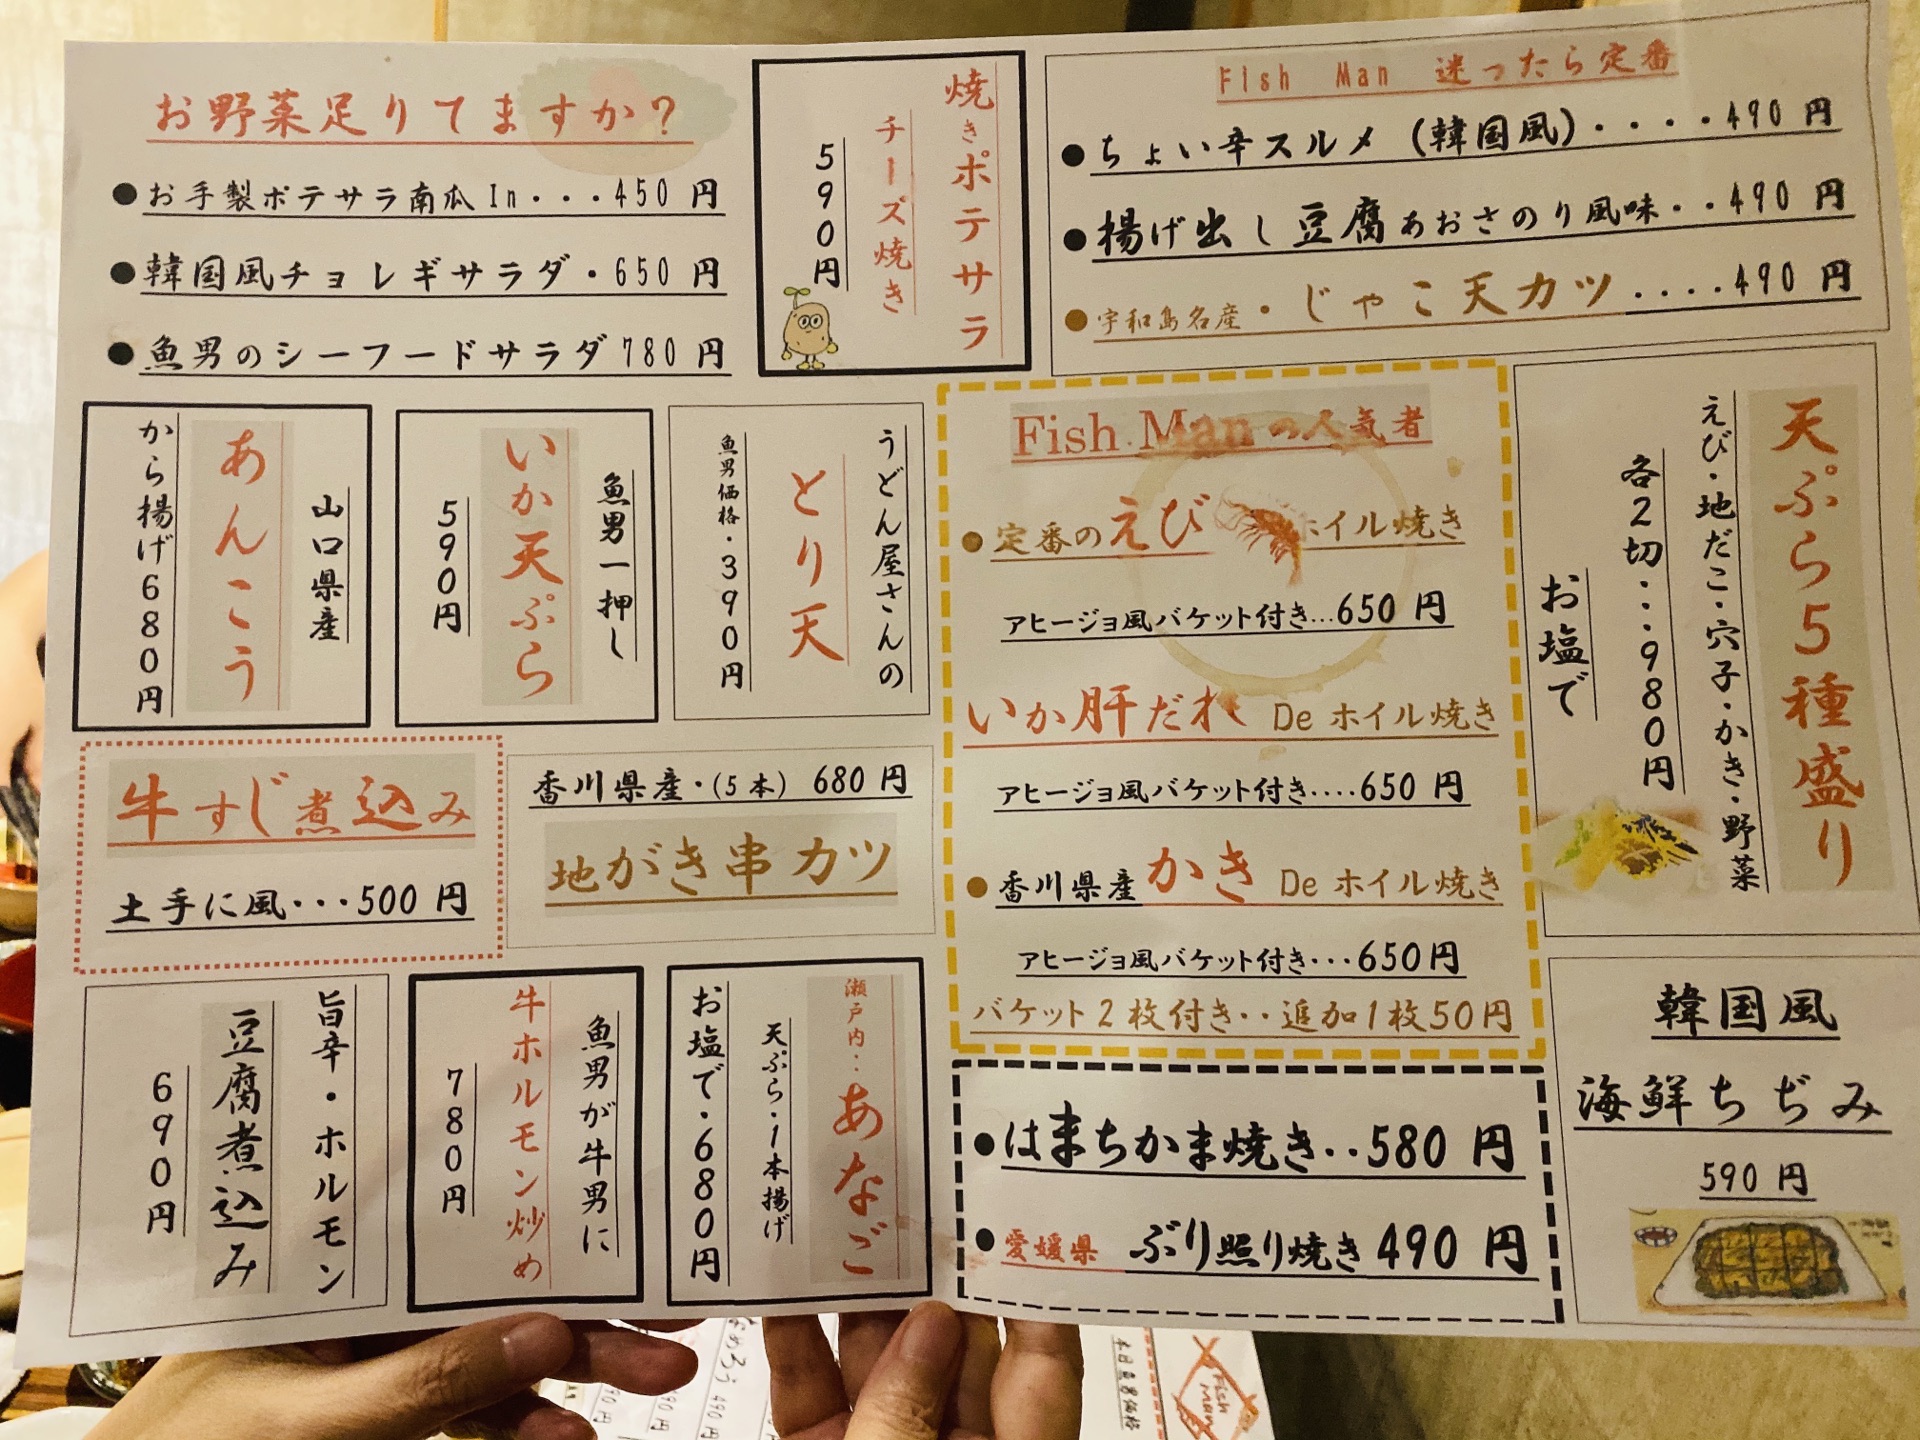 お野菜足りてますか？
●お手製ポテサラ南瓜In・・・450円
●韓国風チョレギサラダ・650円
●魚男のシーフードサラダ780円
焼きポテサラ
チーズ焼き
590円
Fish Man 迷ったら定番
●ちょい辛スルメ（韓国風）・・・・490円
●揚げ出し豆腐あおさのり風味・・490円
●宇和島名産・じゃこ天カツ....490円
山口県産
あんこう
から揚げ680円
魚男一押し
いか天ぷら
590円
うどん屋さんの
とり天
魚男価格・390円
Fish Manの人気者
●定番のえび ホイル焼き
アヒージョ風バケット付き...650円
いか肝だれ De ホイル焼き
アヒージョ風バケット付き....650円
●香川県産かき De ホイル焼き
アヒージョ風バケット付き・・・650円
バケット2枚付き・・追加1枚50円
天ぷら5種盛り
えび・地だこ・穴子・かき・野菜
各2切・・・980円
お塩で
牛すじ煮込み
土手に風・・・500円
香川県産・(5本) 680円
地がき串カツ
旨辛・ホルモン
豆腐煮込み
690円
魚男が牛男に
牛ホルモン炒め
780円
瀬戸内・・あなご
天ぷら・1本揚げ
お塩で・680円
●はまちかま焼き・・580円
●愛媛県 ぶり照り焼き490円
韓国風
海鮮ちぢみ
590円
490円
490円
本日魚男価格
Fish
Man